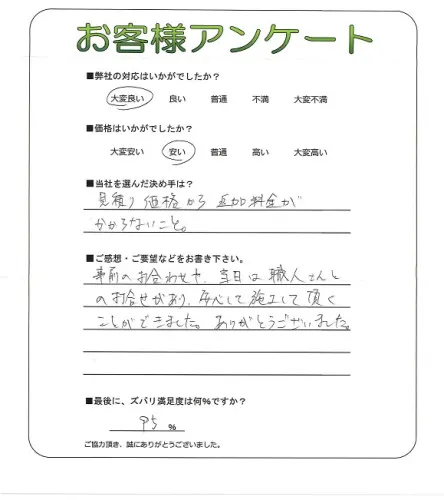 お客様アンケート
■弊社の対応はいかがでしたか？
大変良い 良い 普通 不満 大変不満
■価格はいかがでしたか？
大変安い 安い 普通 高い 大変高い
■当社を選んだ決め手は？
見積り価格から追加料金が
かからないこと。
■ご感想・ご要望などをお書き下さい。
事前のお合わせや、当日は職人さんと
のお合せがあり、安心して施工して頂く
ことができました。ありがとうございました。
■最後に、ズバリ満足度は何%ですか？
95 %
ご協力頂き、誠にありがとうございました。